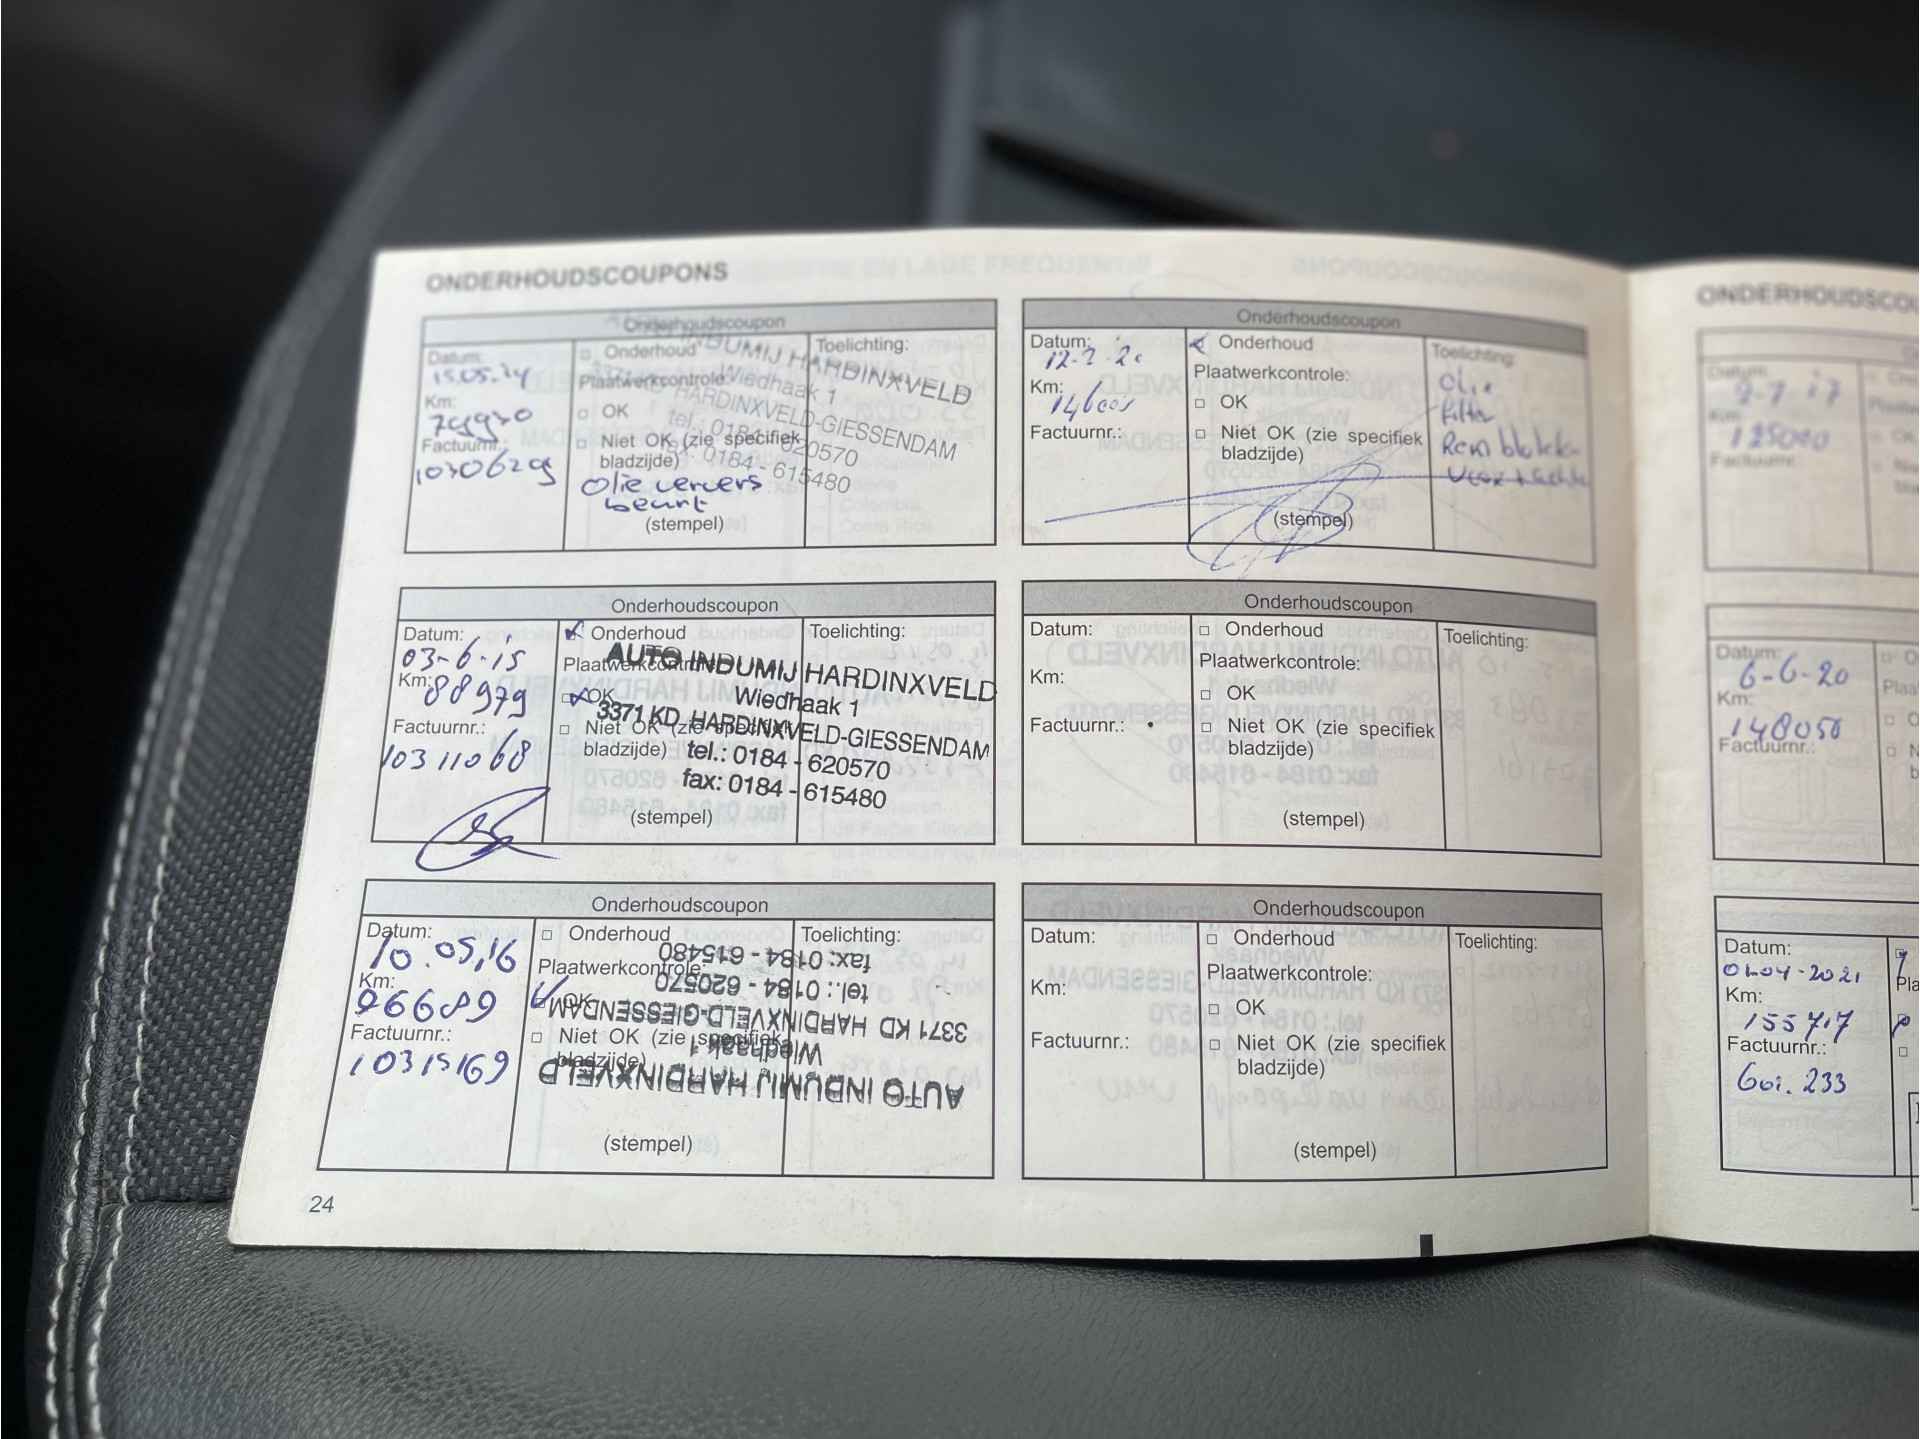 ONDERHOUDSCOUPONS
Onderhoudscoupon
Datum:
15.05.14
Km:
Factuurnr.:
1030629
Onderhoud
Plaatwerkcontrole:
OK
Niet OK (zie specifiek
bladzijde)
Olie ververs
beurt
(stempel)
Toelichting:
INDUMIJ HARDINXVELD
Wiedhaak 1
HARDINXVELD-GIESSENDAM
tel.: 0184 - 620570
fax: 0184 - 615480
Onderhoudscoupon
Datum:
03-6-15
Km:
88979
Factuurnr.:
10311068
Onderhoud
Plaatwerkcontrole
OK
Niet OK (zie specifiek
bladzijde)
(stempel)
Toelichting:
AUTO INDUMIJ HARDINXVELD
Wiedhaak 1
3371 KD HARDINXVELD-GIESSENDAM
tel.: 0184 - 620570
fax: 0184 - 615480
Onderhoudscoupon
Datum:
10.05,16
Km:
96689
Factuurnr.:
10315169
Onderhoud
Plaatwerkcontrole:
OK
Niet OK (zie specifiek
bladzijde)
(stempel)
Toelichting:
AUTO INDUMIJ HARDINXVELD
Wiedhaak 1
3371 KD HARDINXVELD-GIESSENDAM
tel.: 0184 - 620570
fax: 0184 - 615480
24
Onderhoudscoupon
Datum:
Km:
Factuurnr.:
Onderhoud
Plaatwerkcontrole:
OK
Niet OK (zie specifiek
bladzijde)
(stempel)
Toelichting:
Olie
filter
Remblokk
Onderhoudscoupon
Datum:
Km:
Factuurnr.:
Onderhoud
Plaatwerkcontrole:
OK
Niet OK (zie specifiek
bladzijde)
(stempel)
Toelichting:
Onderhoudscoupon
Datum:
Km:
Factuurnr.:
Onderhoud
Plaatwerkcontrole:
OK
Niet OK (zie specifiek
bladzijde)
(stempel)
Toelichting:
ONDERHOUDSCOU
Datum:
Km:
125000
Factuurnr.:
Datum:
6-6-20
Km:
148050
Factuurnr.:
Datum:
01-04-2021
Km:
155717
Factuurnr.:
Pla